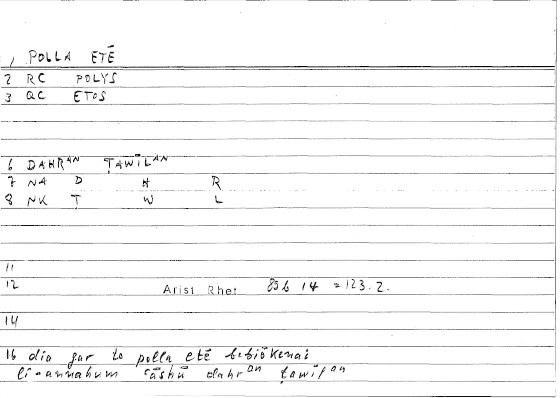 1 POLLA ETĒ
2 RC POLYS
3 QC ETOS
6 DAHRAN ṬAWĪLAN
7 NA D H R
8 NK Ṭ W L
11
12 Arist Rhet 89b 14 = 123.2.
14
16 dia gar to polla etē bebiōkenai
li-annahum ʿāšū dahran ṭawīlan